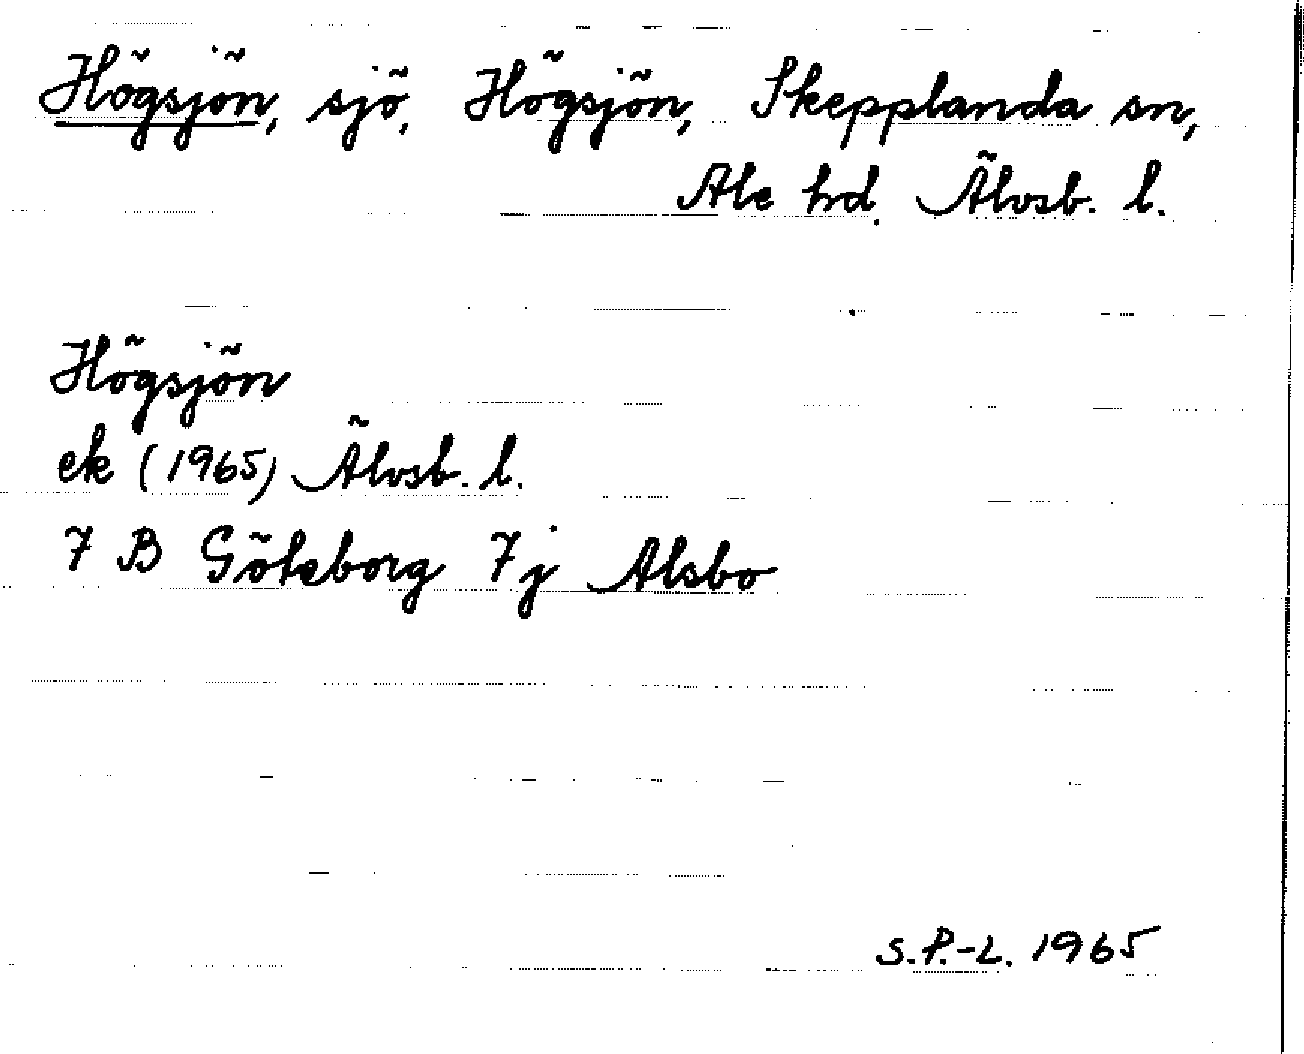 Högsjön, sjö, Högsjön, Skepplanda sn,
Ale hd. Älvsb. l.
Högsjön
ek (1965) Älvsb. l.
7 B Göteborg 7j Alsbo
S.P.-L. 1965